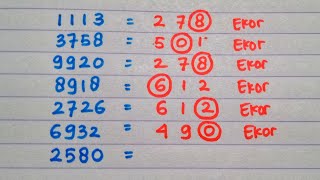 1113 = 2 7 8 Ekor
3758 = 5 0 1 Ekor
9920 = 2 7 8 Ekor
8918 = 6 1 2 Ekor
2726 = 6 1 2 Ekor
6932 = 4 9 0 Ekor
2580 =